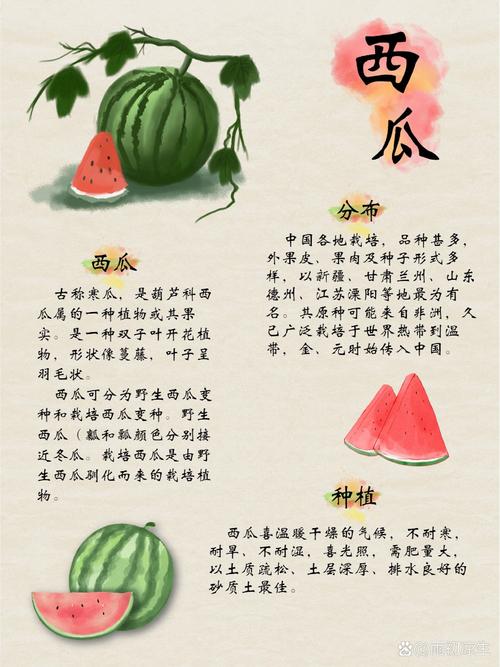 西瓜
西瓜
古称寒瓜，是葫芦科西
瓜属的一种植物或其果
实。是一种双子叶开花植
物，形状像蔓藤，叶子呈
羽毛状。
西瓜可分为野生西瓜变
种和栽培西瓜变种。野生
西瓜（瓤和瓤颜色分别接
近冬瓜。栽培西瓜是由野
生西瓜驯化而来的栽培植
物。
分布
中国各地栽培，品种甚多，
外果皮、果肉及种子形式多
样，以新疆、甘肃兰州、山东
德州、江苏溧阳等地最为有
名。其原种可能来自非洲，久
已广泛栽培于世界热带到温
带，金、元时始传入中国。
种植
西瓜喜温暖干燥的气候，不耐寒，
耐旱、不耐湿，喜光照，需肥量大，
以土质疏松、土层深厚、排水良好的
砂质土最佳。